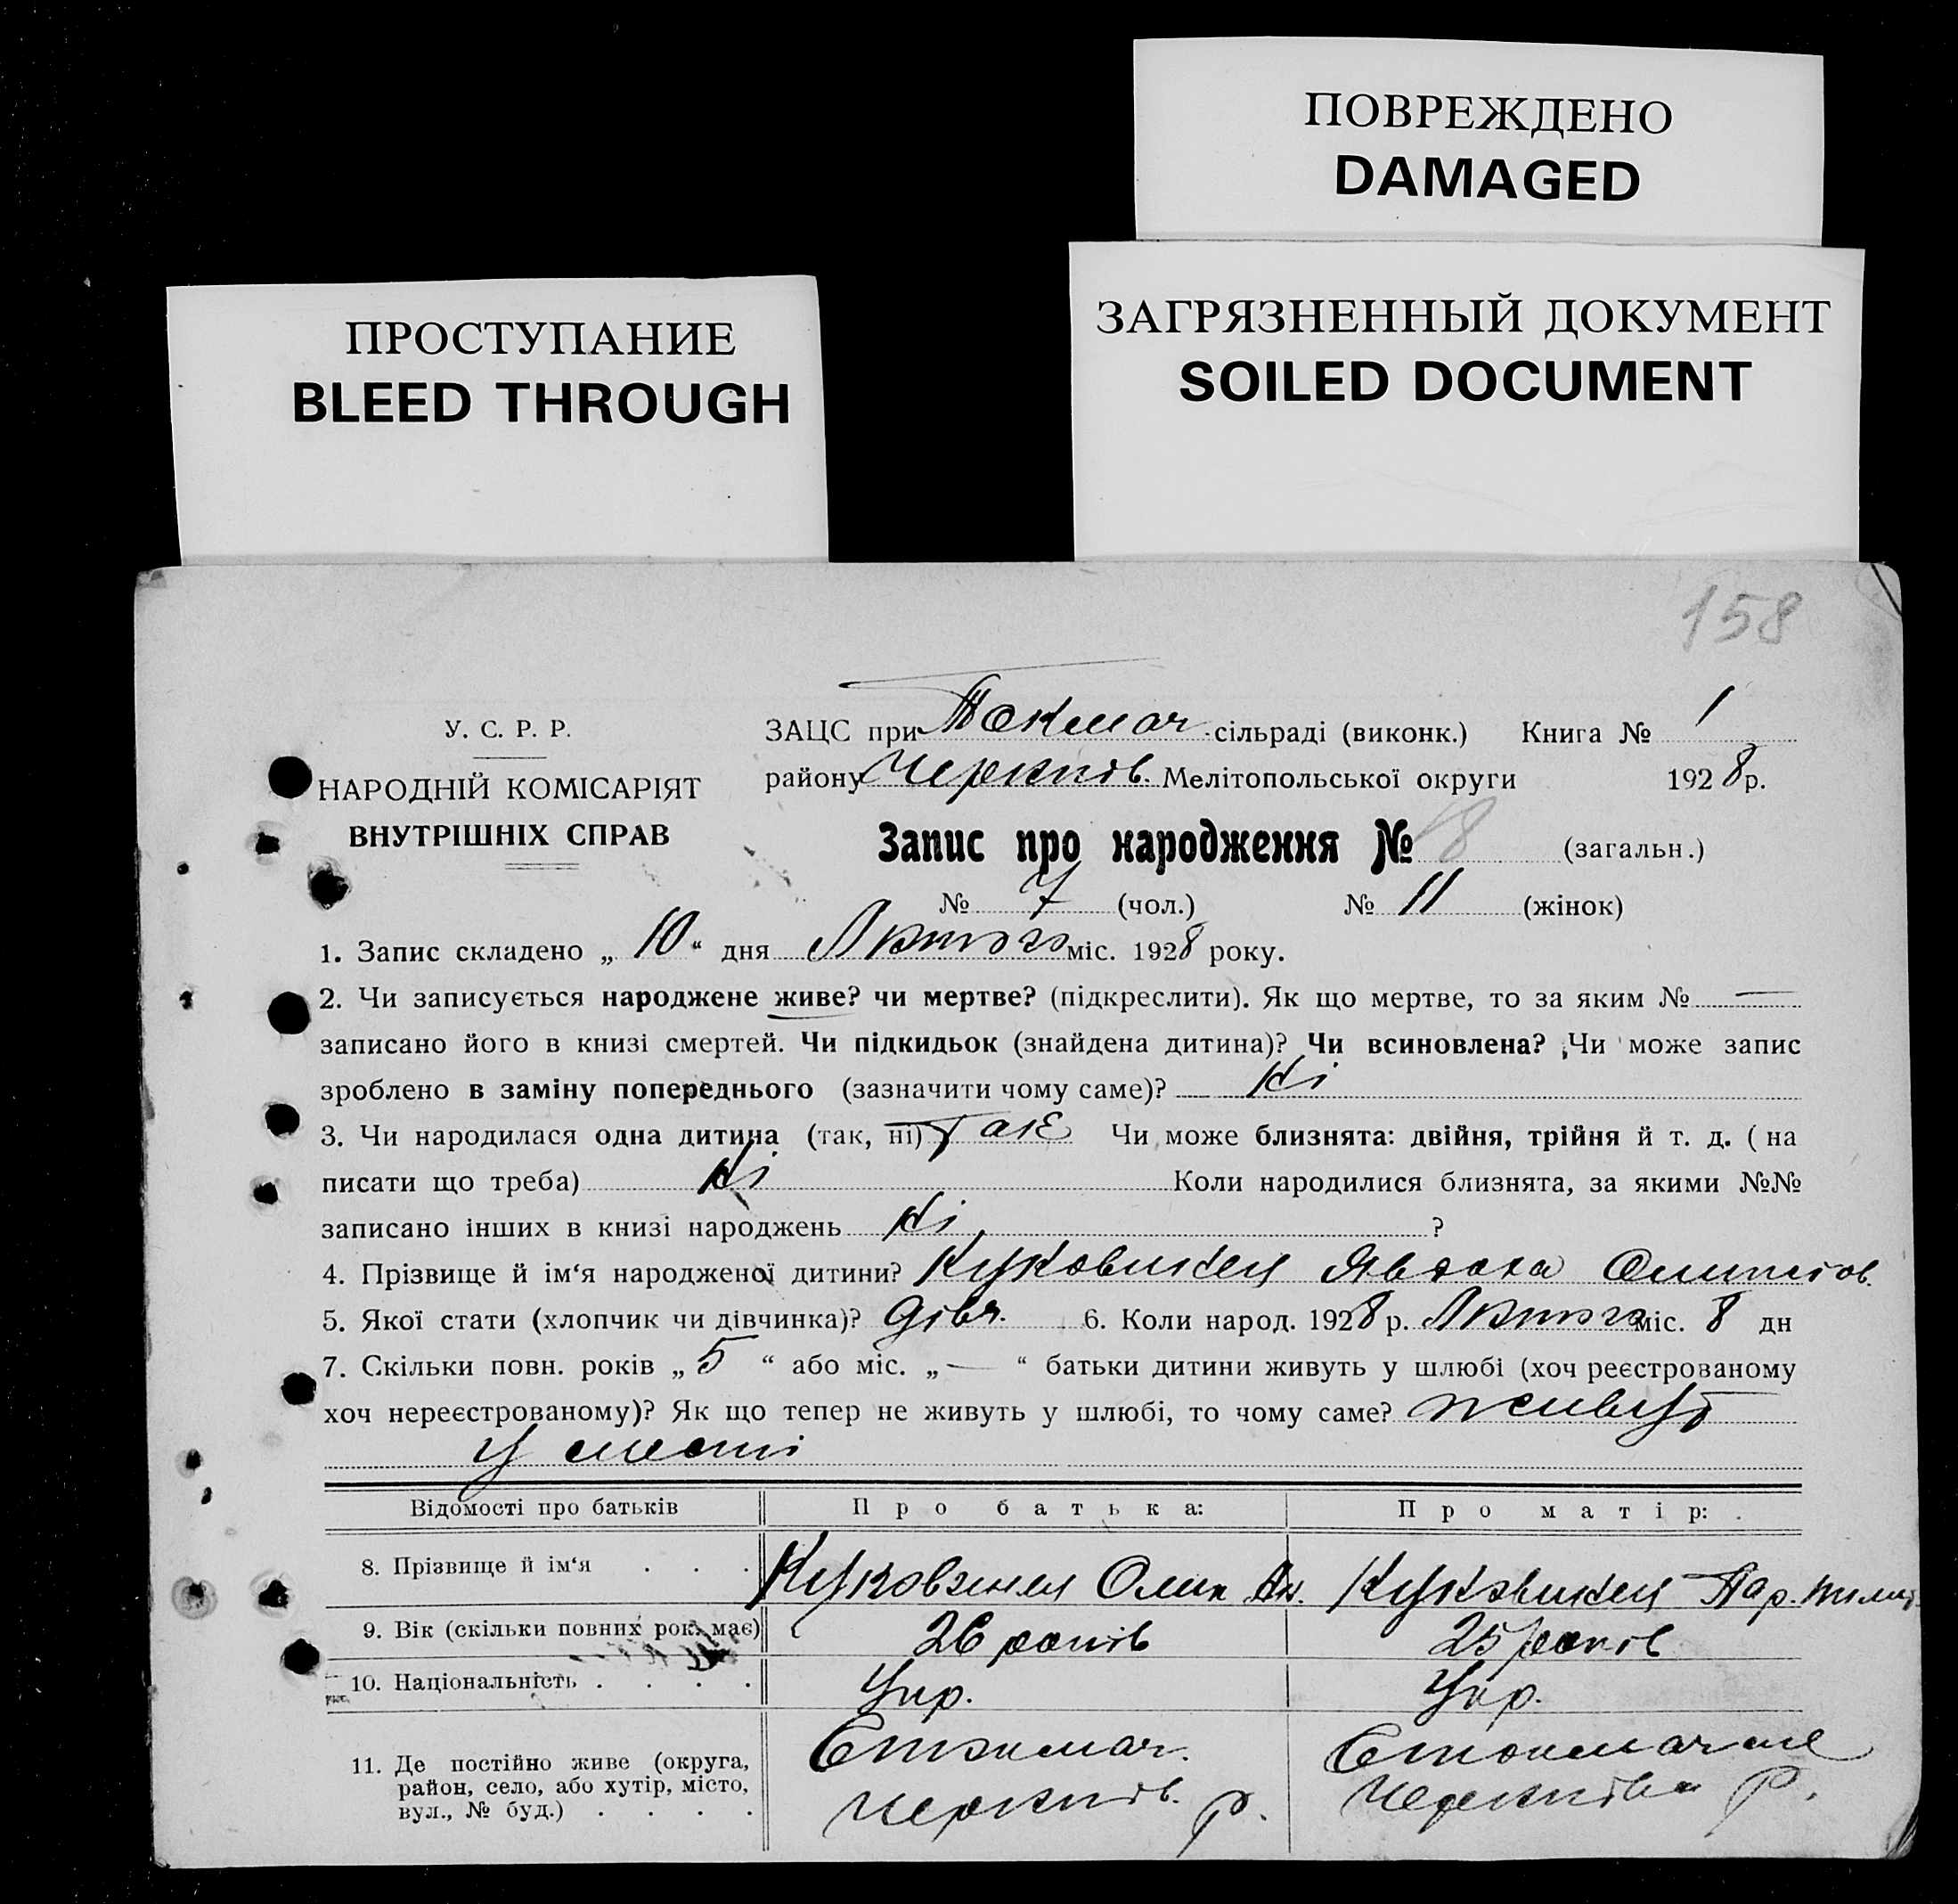 ПОВРЕЖДЕНО
DAMAGED
ПРОСТУПАНИЕ
BLEED THROUGH
ЗАГРЯЗНЕННЫЙ ДОКУМЕНТ
SOILED DOCUMENT
158
У. С. Р. Р.
НАРОДНІЙ КОМІСАРІЯТ
ВНУТРІШНІХ СПРАВ
ЗАЦС при Токмач. сільраді (виконк.) Книга № 1
району Мелітопольської округи 1928 р.
Запис про народження № 18 (загальн.)
№ 7 (чол.) № 11 (жінок)
1. Запис складено „ 10 “ дня Лютого міс. 1928 року.
2. Чи записується народжене живе? чи мертве? (підкреслити). Як що мертве, то за яким № —
записано його в книзі смертей. Чи підкидьок (знайдена дитина)? Чи всиновлена? Чи може запис
зроблено в заміну попереднього (зазначити чому саме)? Ні
3. Чи народилася одна дитина (так, ні) Так Чи може близнята: двійня, трійня й т. д. ( на
писати що треба) Ні Коли народилися близнята, за якими №№
записано інших в книзі народжень Ні ?
4. Прізвище й ім‘я народженої дитини? Явдоха
5. Якої стати (хлопчик чи дівчинка)? дівч. 6. Коли народ. 1928 р. Лютого міс. 8 дн
7. Скільки повн. років „ 5 “ або міс. „ — “ батьки дитини живуть у шлюбі (хоч реєстрованому
хоч нереєстрованому)? Як що тепер не живуть у шлюбі, то чому саме? живуть
у
Відомості про батьків Про батька: Про матір:
8. Прізвище й ім‘я . . . Пар.
9. Вік (скільки повних рок. має) 26 років 25 років
10. Національність . . . . Укр. Укр.
11. Де постійно живе (округа,
район, село, або хутір, місто,
вул., № буд.) . . . .
р. р.